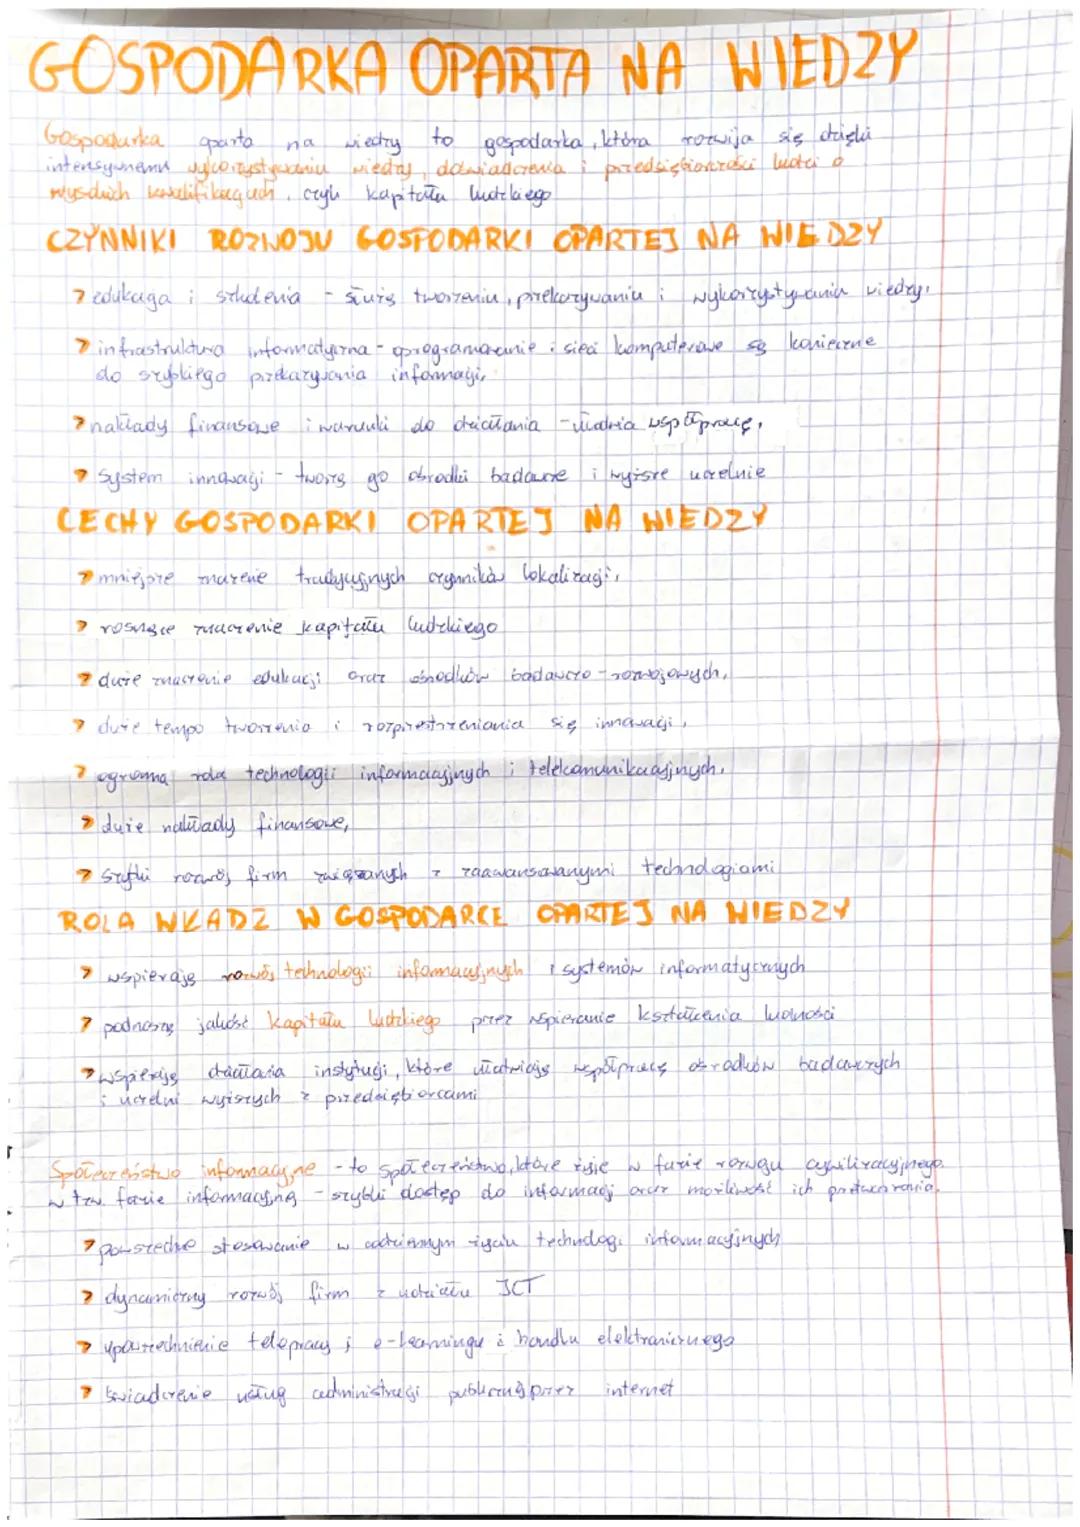 GOSPODARKA OPARTA NA WIEDZY
Gospodarka oparta na wiedzy to gospodarka, która rozwija się dzięki
intensywnemu wykorzystywaniu wiedzy, doświadczenia i przedsiębiorczości ludzi o
wysokich kwalifikacjach, czyli kapitału ludzkiego
CZYNNIKI ROZWOJU GOSPODARKI OPARTEJ NA WIEDZY
> edukacja i szkolenia - służą tworzeniu, przekazywaniu i wykorzystywania wiedzy,
> infrastruktura informatyczna - oprogramowanie i sieci komputerowe są konieczne
do szybkiego przekazywania informacji,
> nakłady finansowe i warunki do działania - ułatwia współpracę,
> system innowacji - tworzą go ośrodki badawcze i wyższe uczelnie
CECHY GOSPODARKI OPARTEJ NA WIEDZY
> mniejsze znaczenie tradycyjnych czynników lokalizacji,
> rosnące znaczenie kapitału ludzkiego
> duże znaczenie edukacji oraz ośrodków badawczo-rozwojowych,
> duże tempo tworzenia i rozprzestrzeniania się innowacji,
> ogromna rola technologii informacyjnych i telekomunikacyjnych,
> duże nakłady finansowe,
> szybki rozwój firm związanych z zaawansowanymi technologiami
ROLA WŁADZ W GOSPODARCE OPARTEJ NA WIEDZY
> wspierają rozwój technologii informacyjnych i systemów informatycznych
> podnoszą jakość kapitału ludzkiego przez wspieranie kształcenia ludności
> wspierają działania instytucji, które ułatwiają współpracę ośrodków badawczych
i uczelni wyższych z przedsiębiorcami
Społeczeństwo informacyjne - to społeczeństwo, które żyje w fazie rozwoju cywilizacyjnego
w tzw. fazie informacyjną - szybki dostęp do informacji oraz możliwość ich przetwarzania.
> powszechne stosowanie w codziennym życiu technologi informacyjnych
> dynamiczny rozwój firm z udziału ICT
> upowszechnienie telepracy, e-learningu i handlu elektronicznego
> świadczenie usług administracji publicznej przez internet